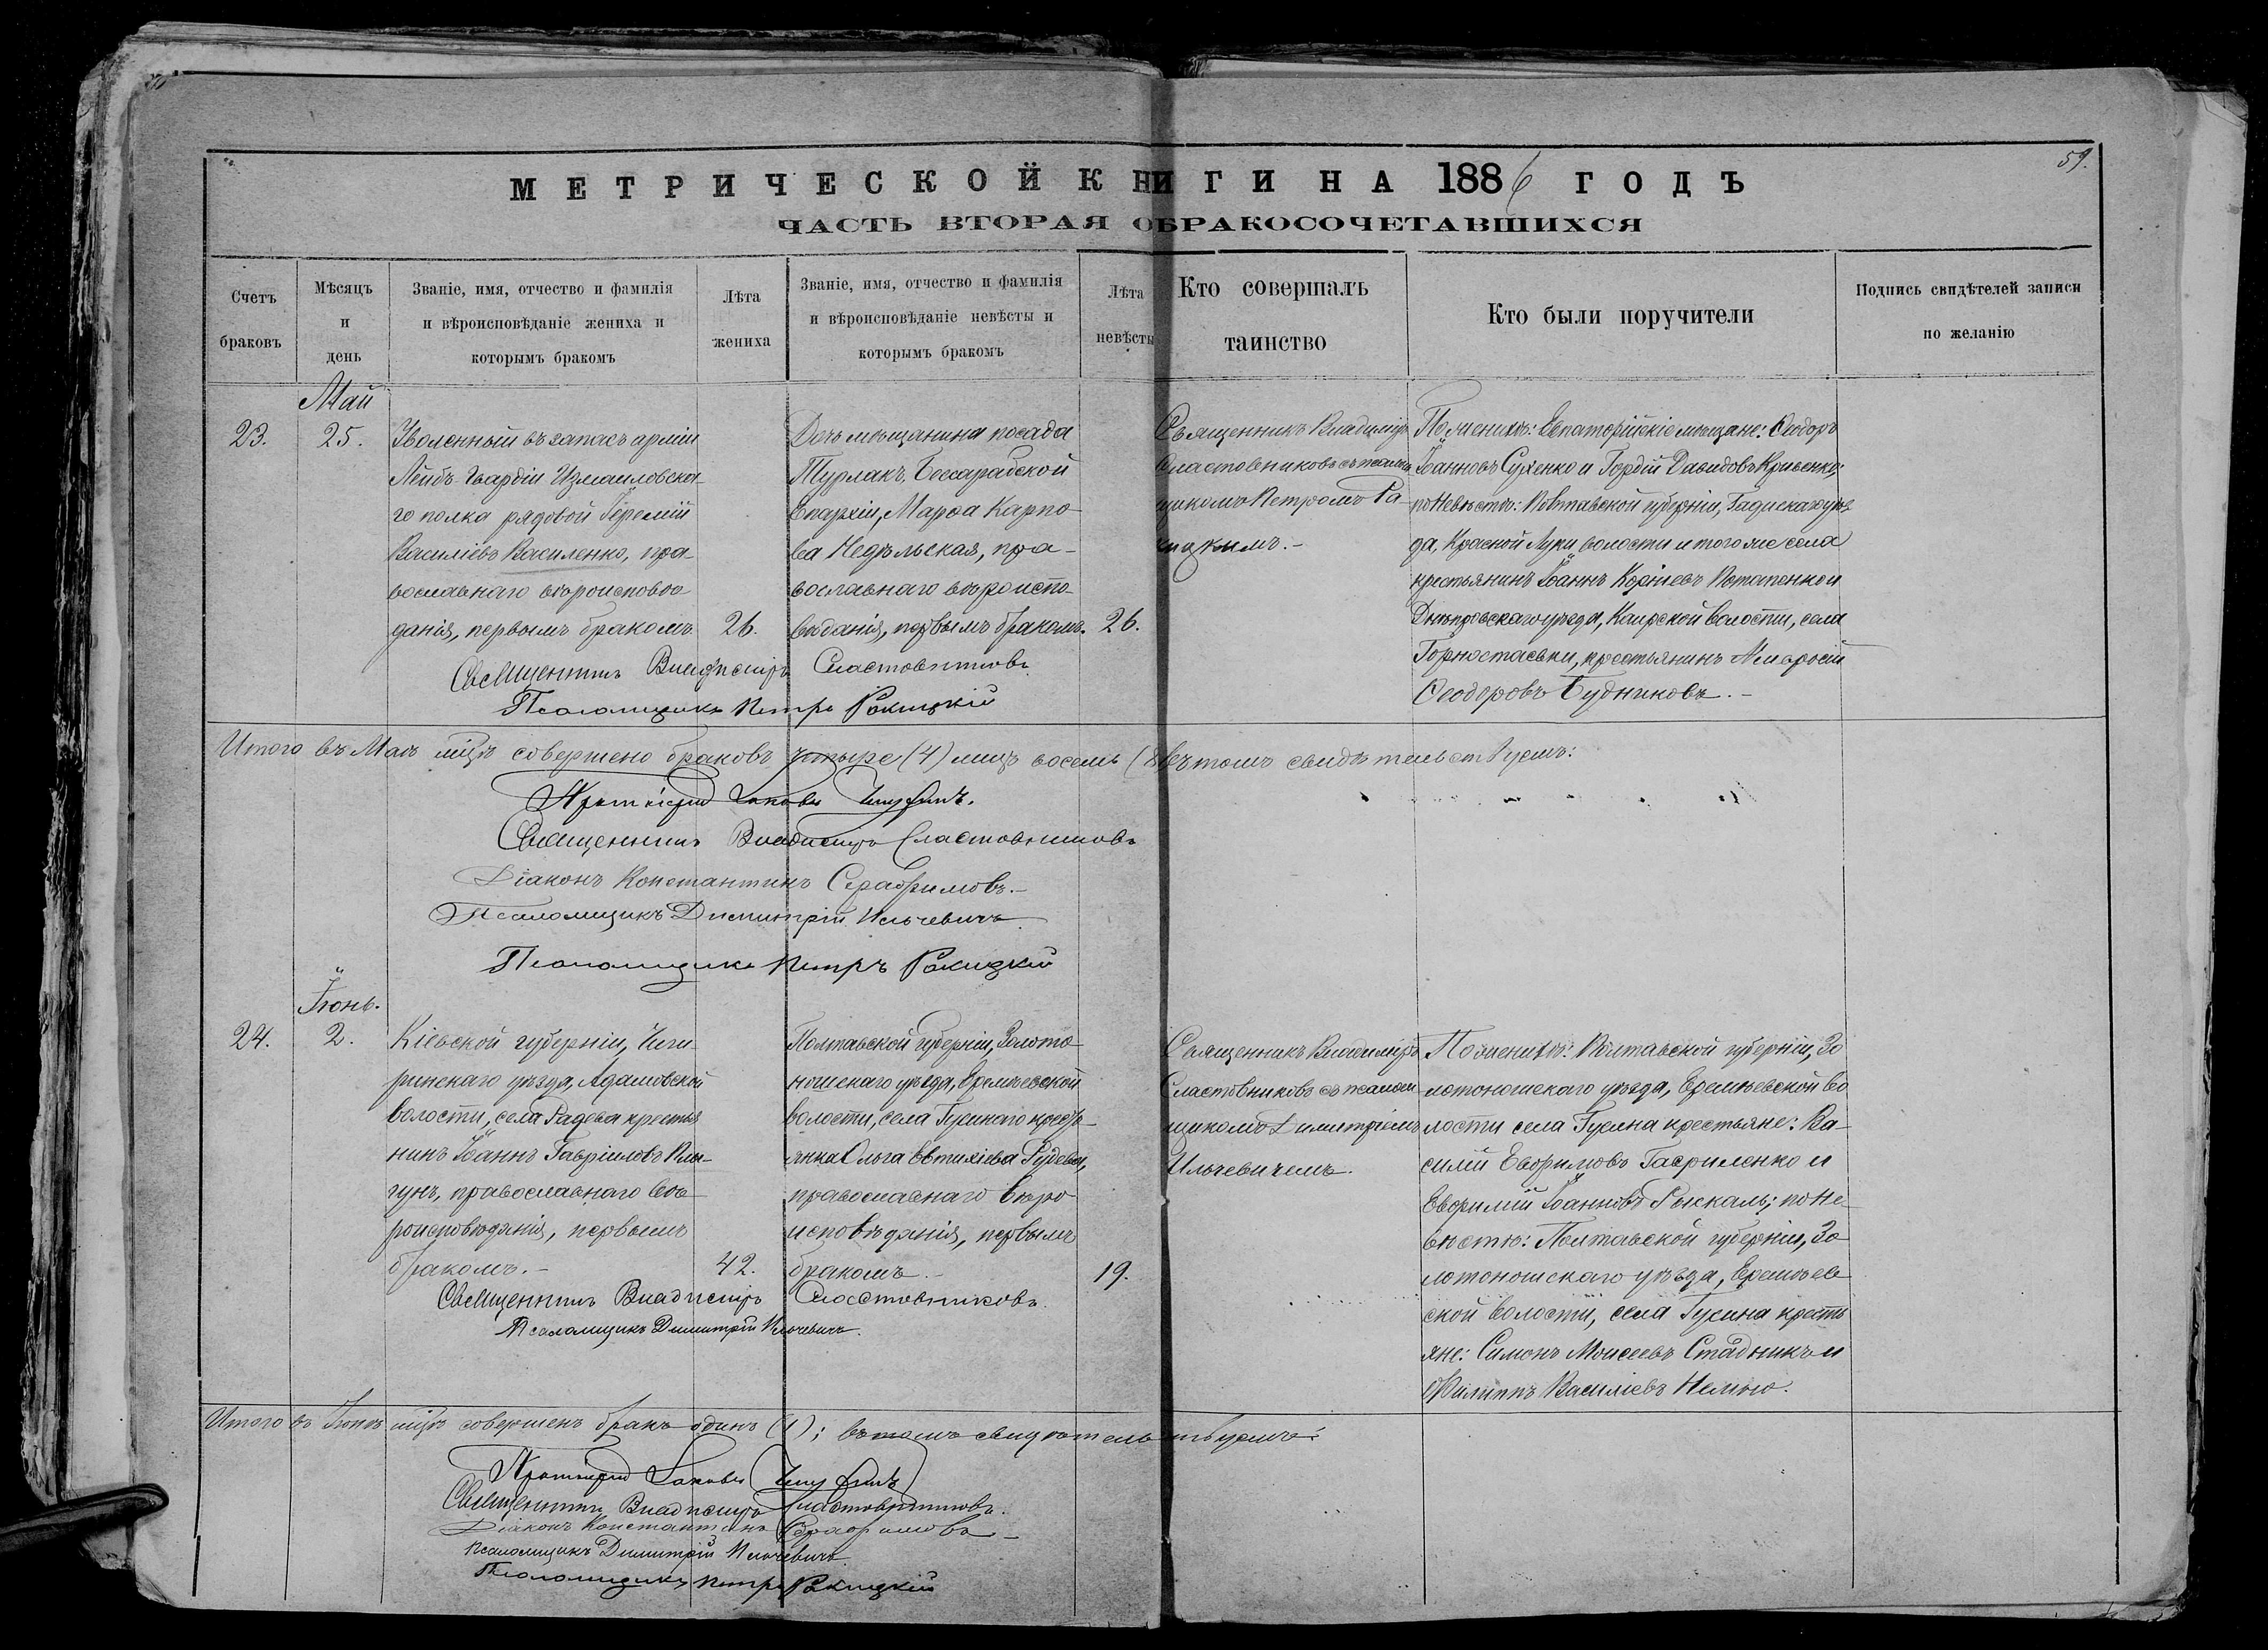 59.
МЕТРИЧЕСКОЙ КНИГИ НА 1886 ГОДЪ
ЧАСТЬ ВТОРАЯ О БРАКОСОЧЕТАВШИХСЯ
Счетъ
браковъ
Мѣсяцъ
и
день
Званіе, имя, отчество и фамилія
и вѣроисповѣданіе жениха и
которымъ бракомъ
Лѣта
жениха
Званіе, имя, отчество и фамилія
и вѣроисповѣданіе невѣсты и
которымъ бракомъ
Лѣта
невѣсты
Кто совершалъ
таинство
Кто были поручители
Подпись свидѣтелей записи
по желанію
Май
23.
25.
Уволенный въ запасъ арміи
Лейбъ-Гвардіи Измаиловска-
го полка рядовой Іеремій
Василіевъ Василенко, пра-
вославнаго вѣроисповѣ-
данія, первымъ бракомъ
26.
Дочь мѣщанина посада
Турлакъ, Бессарабской
Епархіи, Марѳа Карпо-
ва Недѣльская, пра-
вославнаго вѣроиспо-
вѣданія, первымъ бракомъ.
26.
Священникъ Владиміръ
Сластовниковъ съ псалом-
щикомъ Петромъ Ра-
кицкимъ.-
По женихѣ: Евпаторійскіе мѣщане: Ѳеодоръ
Іоанновъ Сухенко и Гордій Давидовъ Кривенко;
по невѣстѣ: Полтавской губерніи, Гадяскаго уѣз-
да, Красной Луки волости и того же села
крестьянинъ Іоаннъ Корніевъ Потапенко и
Днѣпровскаго уѣзда, Каирской волости, села
Горностаевки, крестьянинъ Амвросій
Ѳеодоровъ Будниковъ.-
Священникъ Владиміръ Сластовниковъ
Псаломщикъ Петръ Ракицкій
Итого въ Маѣ мцѣ совершено браковъ четыре (4) лицъ восемь (8) въ томъ свидѣтельствуемъ:
Протоіерей Іаковъ
Священникъ Владиміръ Сластовниковъ
Діаконъ Константинъ Серафимовъ.-
Псаломщикъ Димитрій Ильчевичъ.
Псаломщикъ Петръ Ракицкій
Іюнь.
24.
2.
Кіевской губерніи, Чиги-
ринскаго уѣзда, Адамовской
волости, села Радева крестья
нинъ Іоаннъ Гавріиловъ Пла-
гунъ, православнаго вѣ-
роисповѣданія, первымъ
бракомъ.-
42.
Полтавской губерніи, Золото-
ношскаго уѣзда, Еремѣевской
волости, села Гусинаго кресть-
янка Ольга Евтихіева Гудева,
православнаго вѣро
исповѣданія, первымъ
бракомъ.-
19.
Священникъ Владиміръ
Сластовниковъ съ псалом
щикомъ Димитріемъ
Ильчевичемъ.
По женихѣ: Полтавской губерніи, Зо
лотоношскаго уѣзда, Еремѣевской во
лости села Гусина крестьяне: Ва-
силій Евфимовъ Гавриленко и
Евфимій Іоанновъ; по не-
вѣстѣ: Полтавской губерніи, Зо
лотоношскаго уѣзда, Еремѣев
ской волости, села Гусина кресть
яне: Симонъ Моисеевъ Стадникъ и
Филиппъ Василіевъ.
Священникъ Владиміръ Сластовниковъ
Псаломщикъ Димитрій Ильчевичъ.
Итого въ Іюнѣ мцѣ совершенъ бракъ одинъ (1); въ томъ свидѣтельствуемъ:
Протоіерей Іаковъ
Священникъ Владиміръ Сластовниковъ.
Діаконъ Константинъ Серафимовъ-
Псаломщикъ Димитрій Ильчевичъ.
Псаломщикъ Петръ Ракицкій